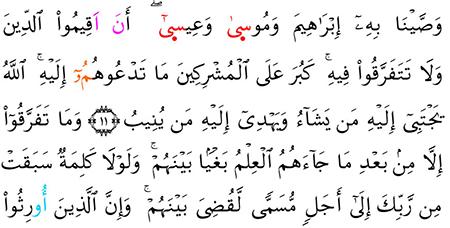 وَصَّيْنَا بِهِۦٓ إِبْرَٰهِيمَ وَمُوسِىٰ وَعِيسِىٰٓۖ أَنَ اَقِيمُوا۟ اُ۬لدِّينَ
وَلَا تَتَفَرَّقُوا۟ فِيهِۚ كَبُرَ عَلَى اَ۬لْمُشْرِكِينَ مَا تَدْعُوهُمُۥٓ إِلَيْهِۚ اُ۬للَّهُ
يَجْتَبِىٓ إِلَيْهِ مَن يَشَآءُ وَيَهْدِىٓ إِلَيْهِ مَن يُنِيبُ ﴿١١﴾ وَمَا تَفَرَّقُوٓا۟
إِلَّا مِنۢ بَعْدِ مَا جَآءَهُمُ اُ۬لْعِلْمُ بَغْيَۢا بَيْنَهُمْۚ وَلَوْلَا كَلِمَةٌ سَبَقَتْ
مِن رَّبِّكَ إِلَىٰٓ أَجَلٍ مُّسَمًّى لَّقُضِىَ بَيْنَهُمْۚ وَإِنَّ اَ۬لَّذِينَ أُورِثُوا۟